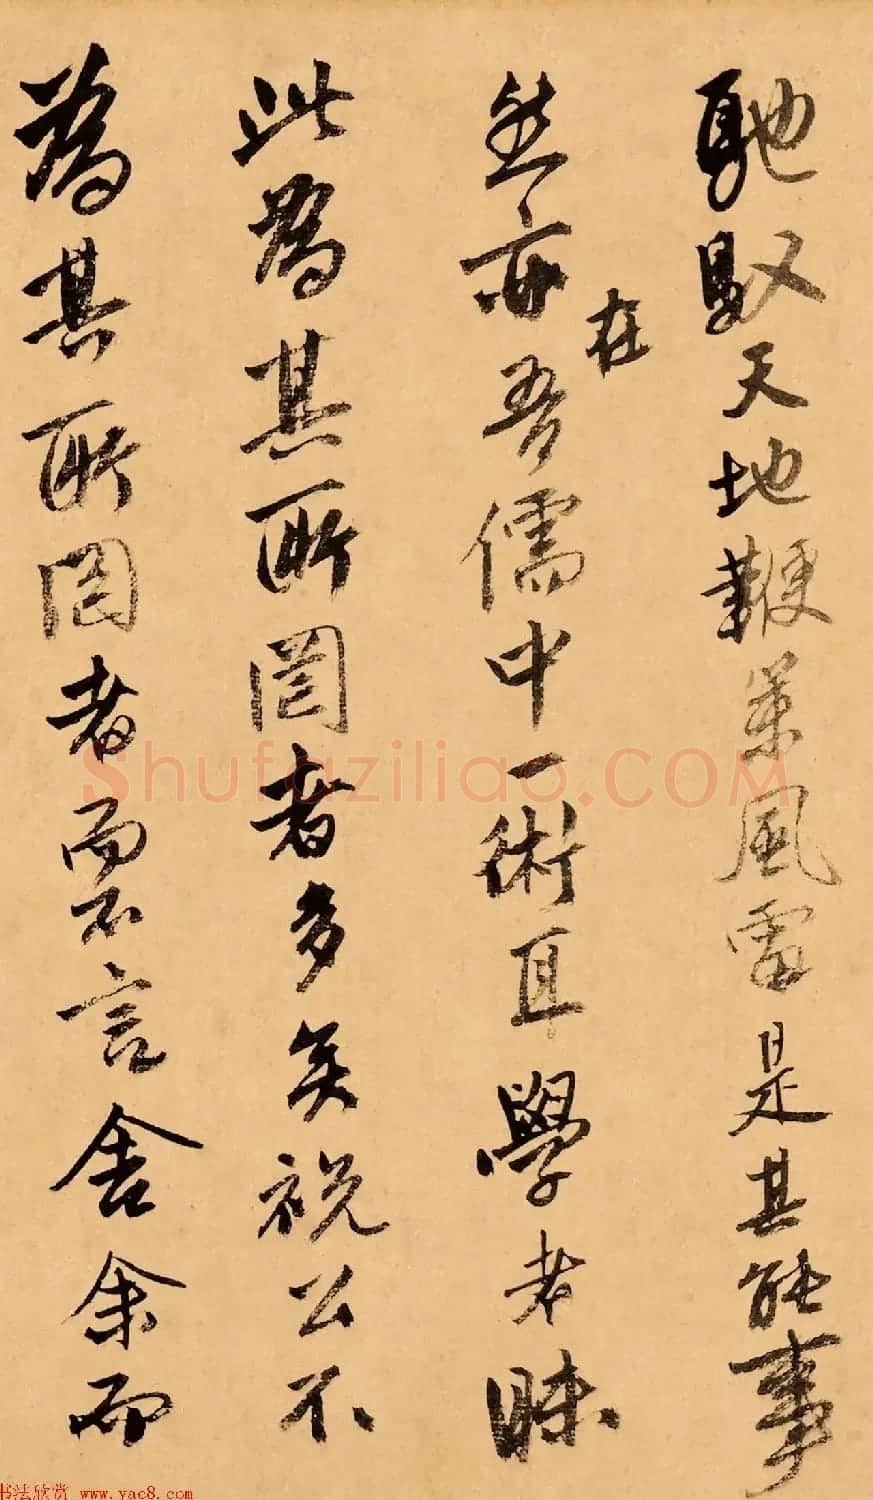 馳馭天地鞭策風雷是其能事
然亦在吾儒中一術耳學者昧
此為其所罔者多矣祝公不
為其所罔者而不言舍余而
Shufaziliao.COM
书法欣赏 www.yac8.com